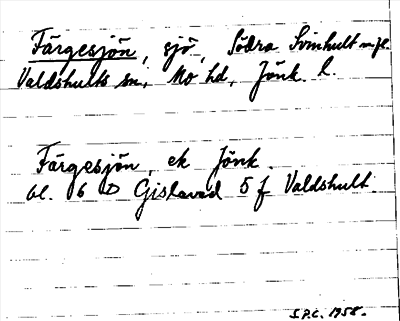 Färgesjön, sjö, Södra Svinhult m.fl.
Valdshults sn, Mo hd, Jönk. l.
Färgesjön, ek Jönk.
bl. 6 D Gislaved 5 f Valdshult.
S.P.C. 1958.